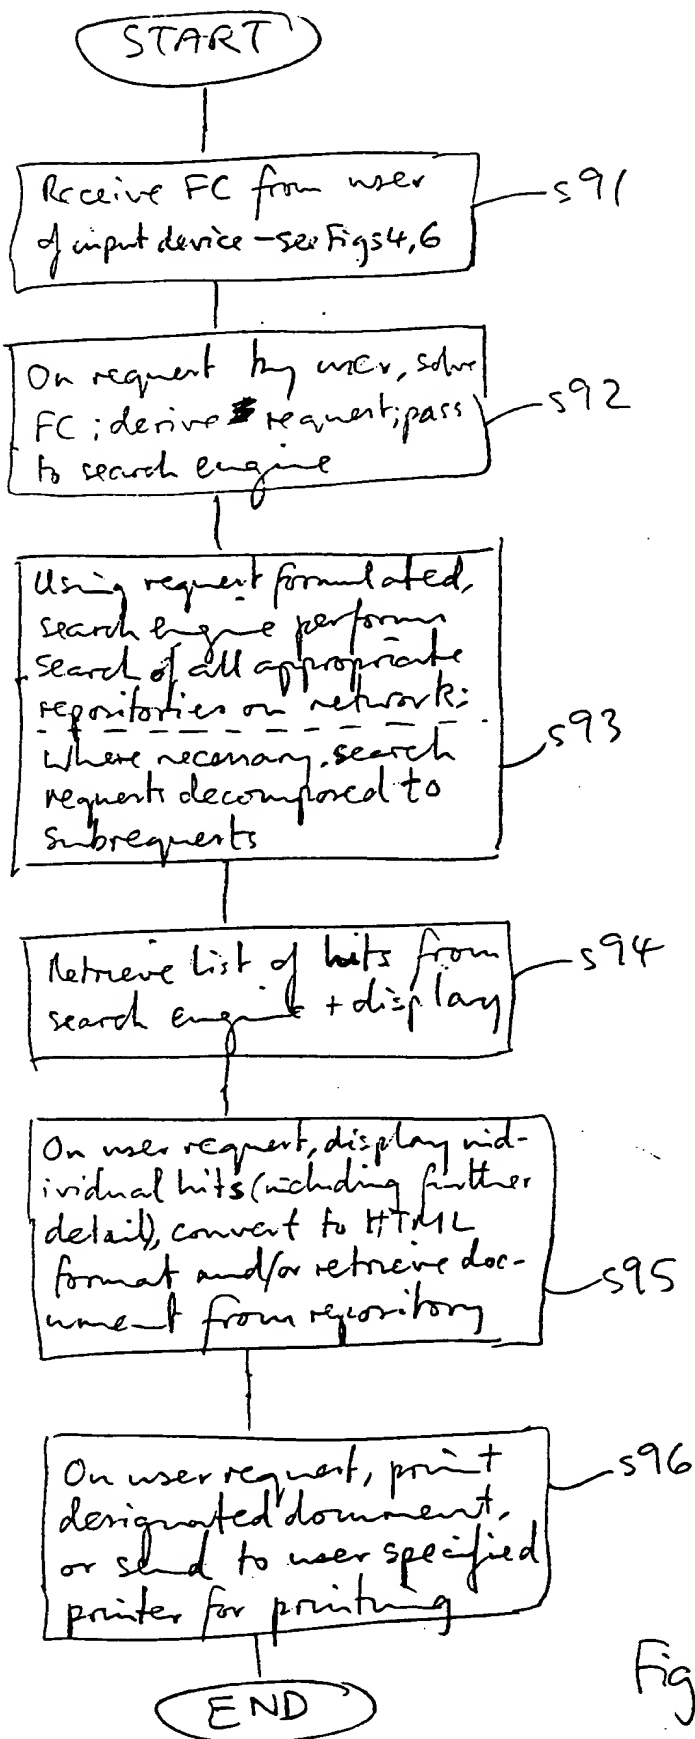 START
Receive FC from user
of input device - see Figs 4, 6
s91
On request by user, solve
FC; derive request; pass
to search engine
s92
Using request formulated,
search engine performs
search of all appropriate
repositories on network:
Where necessary, search
requests decomposed to
subrequests
s93
Retrieve list of hits from
search engine + display
s94
On user request, display ind-
ividual hits (including further
detail), convert to HTML
format and/or retrieve doc-
ument from repository
s95
On user request, print
designated document,
or send to user specified
printer for printing
s96
END
Fig